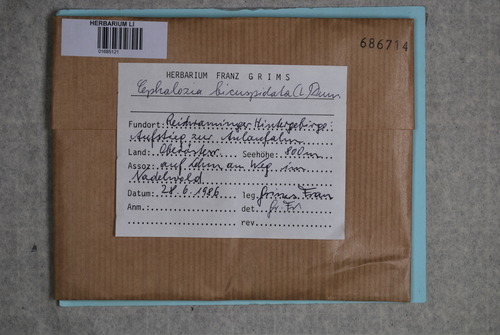 HERBARIUM LI
01685121
686714
HERBARIUM FRANZ GRIMS
Cephalozia bicuspidata (L.) Dum.
Fundort: Reichraminger Hintergebirge:
Aufstieg zur Anlaufalm
Land: Oberösterr. Seehöhe: 800 m
Assoz: auf Lehm am Weg im
Nadelwald
Datum: 28.6.1986 leg. Grims Franz
Anm.: det. Gr. Fr.
rev.